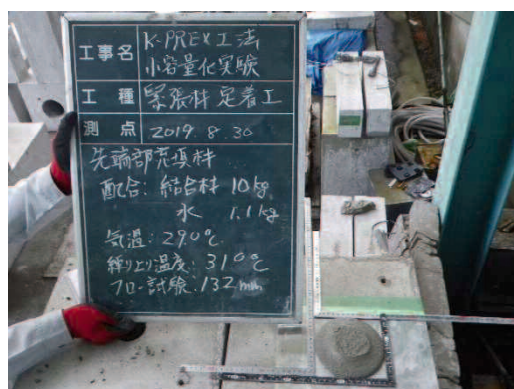 工事名 K-PREX工法
小容量化実験
工種 緊張材 定着工
測点 2019.8.30
先端部充填材
配合：結合材 10kg
水 1.1kg
気温：29.0℃
練り上り温度：31.0℃
フロー試験：132mm